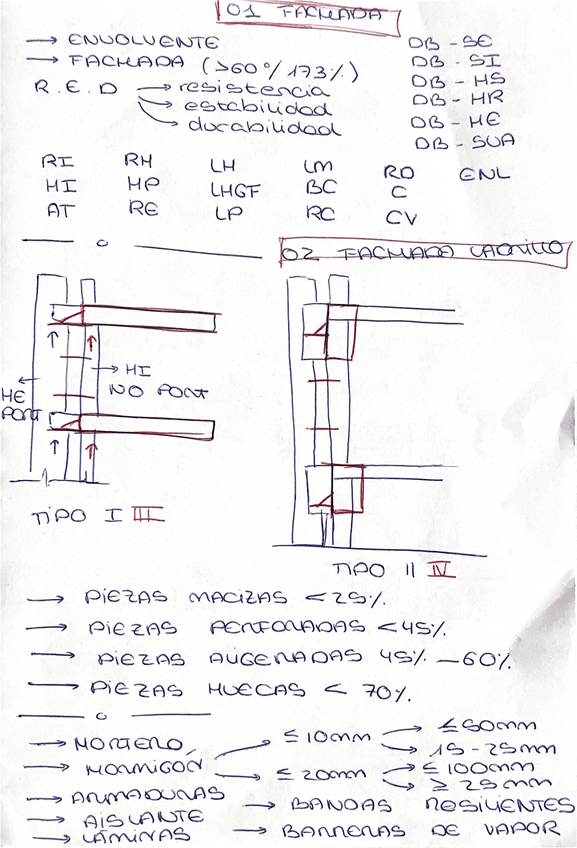 01 FACHADA
→ ENVOLVENTE
→ FACHADA (>60º/173%)
R.E.D → resistencia
→ estabilidad
→ durabilidad
DB-SE
DB-SI
DB-HS
DB-HR
DB-HE
DB-SUA
RI RH LH LM RO ENL
HI HP LHGF BC C
AT RE LP RC CV
02 FACHADA LADRILLO
→ HI
NO PORT
HE
PORT
TIPO I III
TIPO II IV
→ PIEZAS MACIZAS <25%
→ PIEZAS PERFORADAS <45%
→ PIEZAS ALIGERADAS 45%-60%
→ PIEZAS HUECAS < 70%
→ MORTERO
→ HORMIGÓN
≤10mm → ≤50mm
→ 15-25mm
≤20mm → ≤100mm
→ ≥25mm
→ ARMADURAS
→ AISLANTE
→ LÁMINAS
→ BANDAS RESILIENTES
→ BARRERAS DE VAPOR